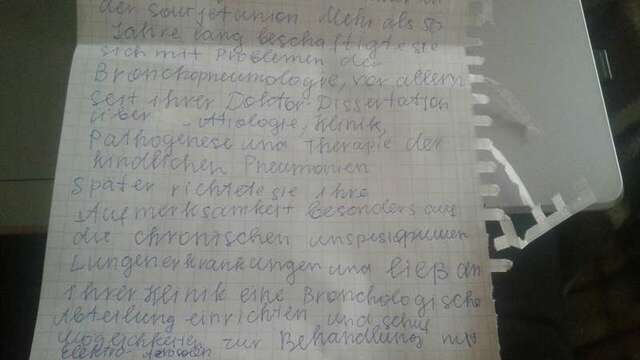 der Sowjetunion Mehr als 30
Jahre lang beschäftigte sie
sich mit Problemen der
Bronchopneumologie, vor allem
seit ihrer Doktor-Dissertation
über Ätiologie, Klinik,
Pathogenese und Therapie der
kindlichen Pneumonien
Später richtete sie ihre
Aufmerksamkeit besonders auf
die chronischen
Lungenerkrankungen und ließ an
ihrer Klinik eine Bronchologische
Abteilung einrichten und schuf
Möglichkeiten zur Behandlung mit
Elektro-